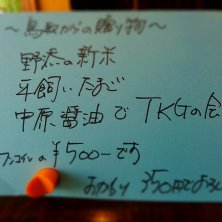 ～鳥取からの贈り物～
野添の新米
平飼いたまご
中原醤油で TKGの会
ワンコインの ¥500-です
おかわり 350円でおろし